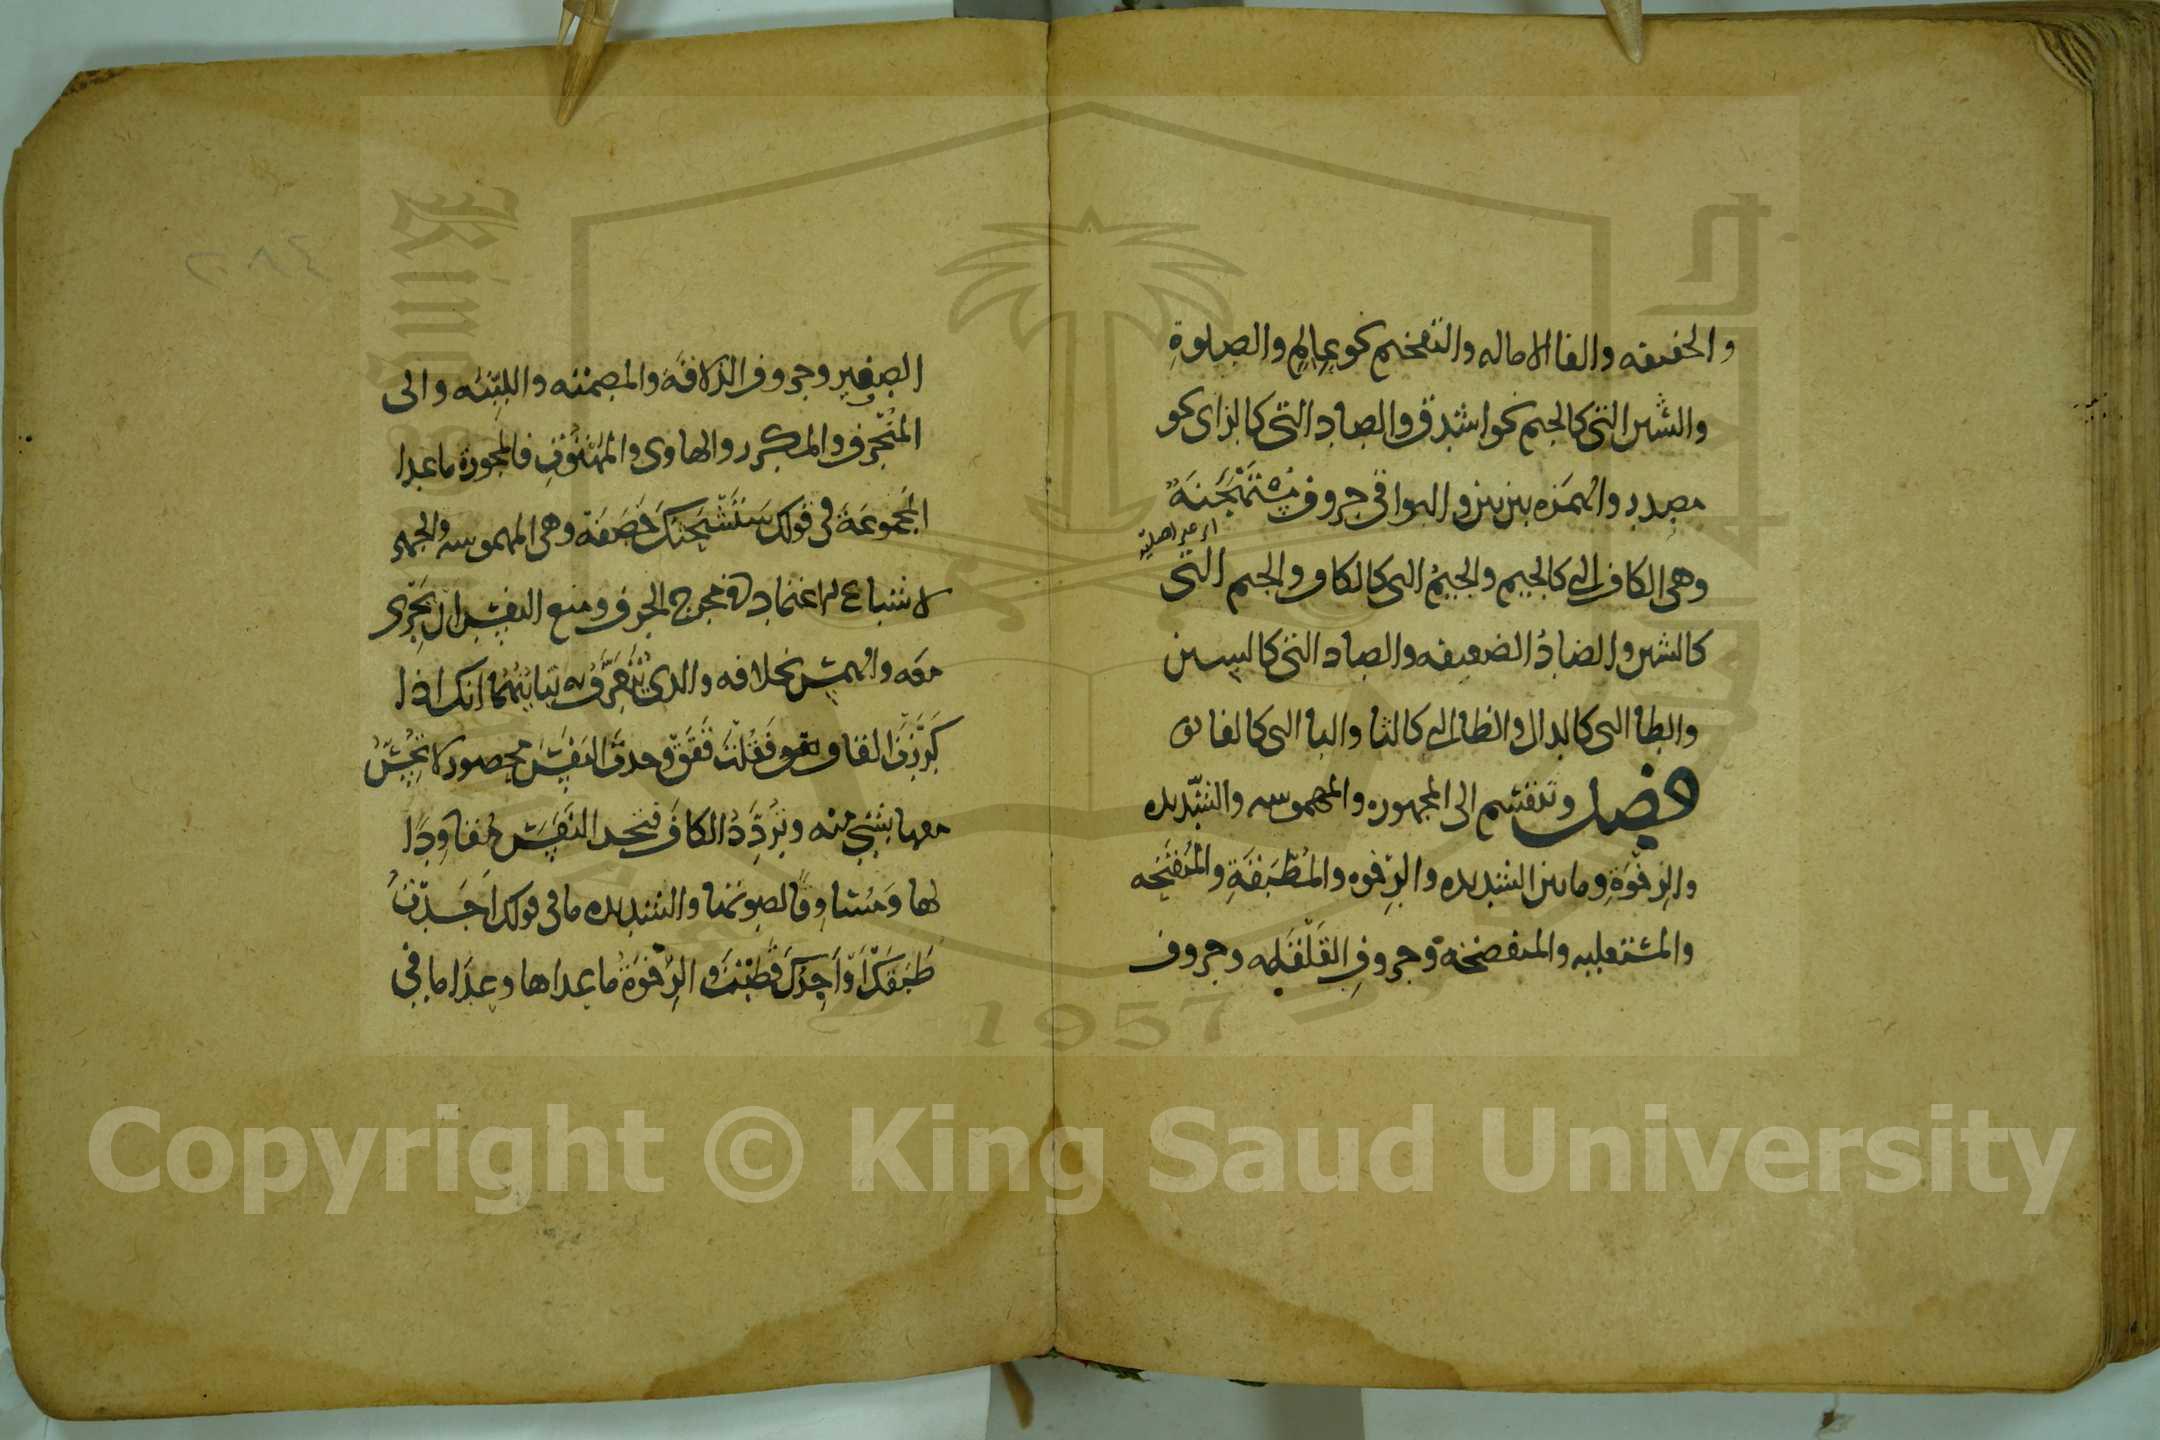 والخفيفه والفا الاماله والتفخيم نحو عالم والصلوةِ
والشين التي كالجيم نحو اشدق والصاد التي كالزاى نحو
مصدر والهمزه بين بين والبواقى حروف مُسْتَهْجَنَةٌ
وهى الكاف التي كالجيم والجيمُ التى كالكاف والجيم التى
كالشين والضادُ الضعيفه والصاد التى كالسين
والطا التى كالدال والظا التى كالثا والبا التى كالفا
فصل وتنقسم الى المجهوره والمهموسه والشّديده
والرِخْوَةِ وما بين الشديده والرِخوه والمُطْبَقَةِ والمُنفَتِحَه
والمستعليه والمنخفضة وحروفِ القَلْقَله وحروف
الصفير وحروف الذلاقةَ والمصمته واللينه والى
المُنْحَرِف والمكرر والهاوى والمهْتُوتِ فالمجهورة ماعدا
المجموعَةَ فى قولك سَتَشْحَثُكَ خَصَفَة وهى المهموسه والجهر
لاشباع الاعتماد فى مخرج الحرف ومنع النفس ان يَجْرِى
معَه والهمس بخلافه والذى يُتَعَرَّفُ به تَبايُنُهُمَا انك اذا
كَرَّرْتَ القاف فَقُلْتَ قَقَقَ وجدتَّ النفَسَ محصورا لا تُحِسُّ
معها بشئ منه وتُرَدِّدُ الكافَ فتجد النفَسَ مُقاوِدًا
لها وَمُساوِقًا لصوتها والشديده ما فى قولك اَجَدْتَ
طَبَقَكَ اَوْ اَجِدُكَ قَطَبْتَ والرِخْوَةُ ماعداها وعدا ما فى
King Saud University
1957
Copyright © King Saud University